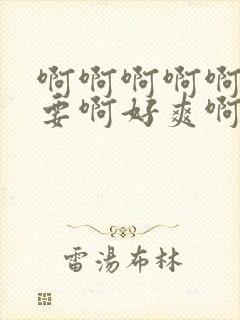 啊啊啊啊啊
要啊好爽啊
雷湯布林